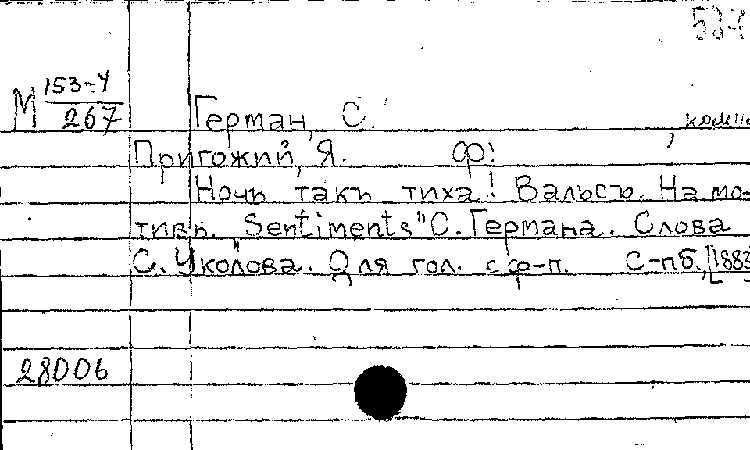 М 153-4
267
Герман, С. , комп
Пригожий, Я. Ф!
Ночь такъ тиха! Вальсъ. На мо-
тивъ. Sentiments" С. Германа. Слова
С. Уколова. Для гол. с ф-п. С-пб., [1883
28006